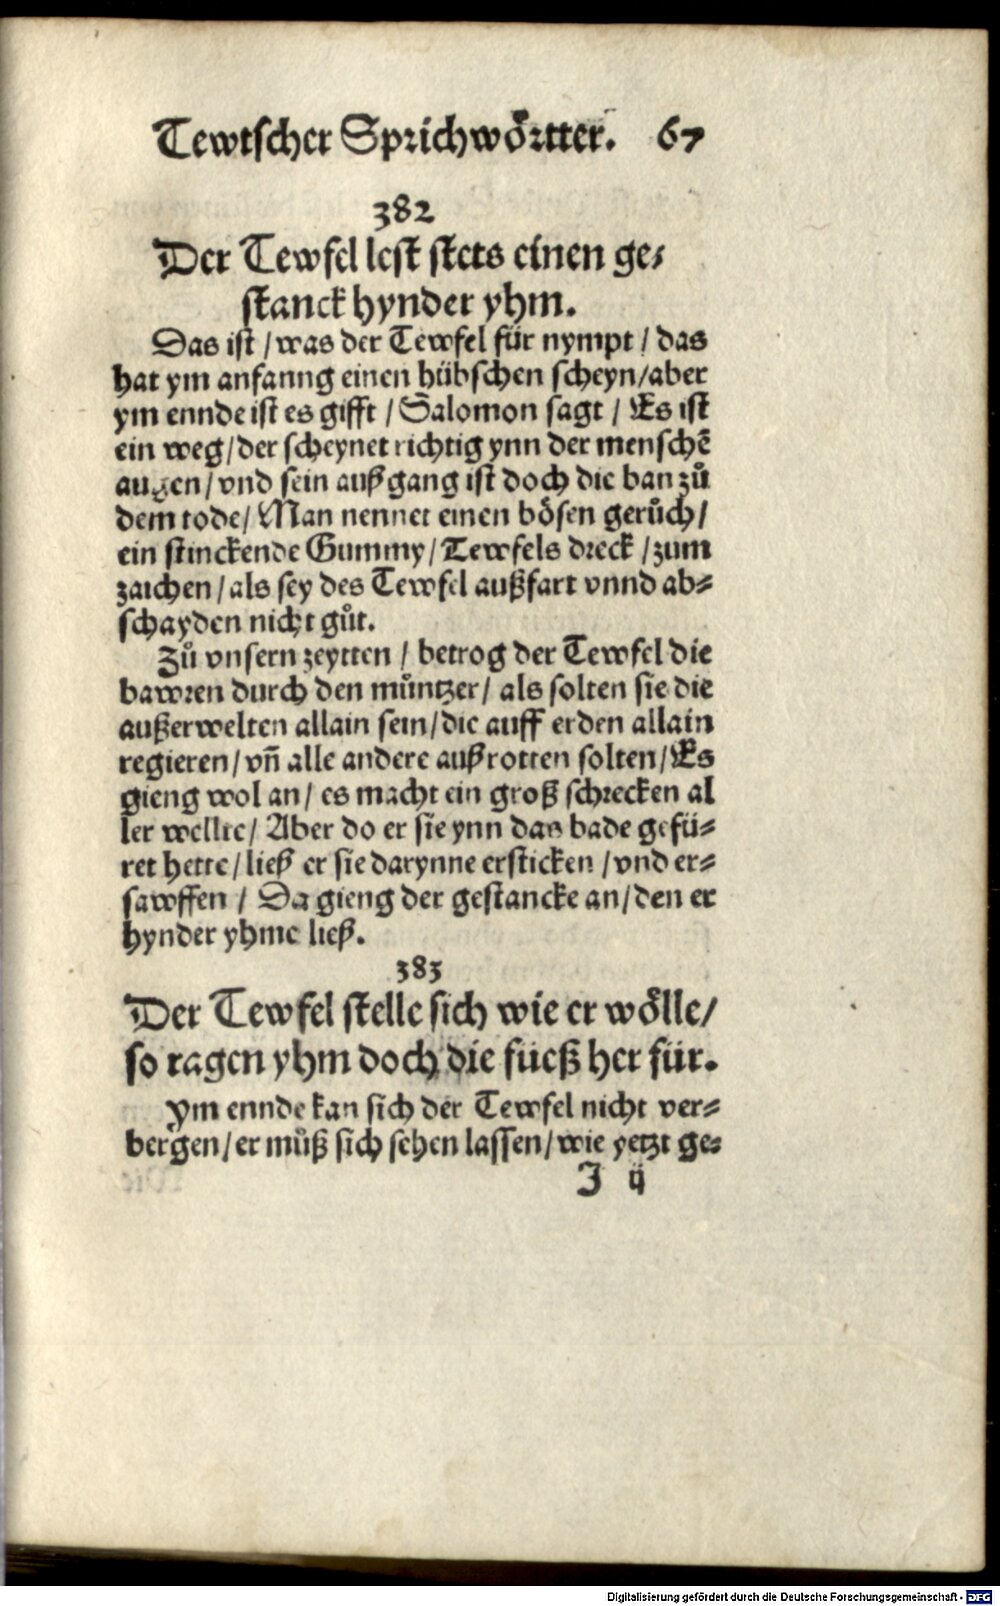 Tewtscher Sprichwörtter. 67
382
Der Tewfel lest stets einen ge⸗
stanck hynder yhm.
Das ist / was der Tewfel für nympt / das
hat ym anfanng einen hübschen scheyn/aber
ym ennde ist es gifft / Salomon sagt / Es ist
ein weg/der scheynet richtig ynn der menschē
augen/vnd sein außgang ist doch die ban zů
dem tode/ Man nennet einen bösen gerůch/
ein stinckende Gummy/Tewfels dreck /zum
zaichen/als sey des Tewfel außfart vnnd ab⸗
schayden nicht gůt.
Zů vnsern zeytten / betrog der Tewfel die
bawren durch den můntzer/ als solten sie die
außerwelten allain sein/die auff erden allain
regieren/vñ alle andere außrotten solten/Es
gieng wol an/ es macht ein groß schrecken al
ler wellte/ Aber do er sie ynn das bade gefü⸗
ret hette/ließ er sie darynne ersticken /vnd er⸗
sawffen / Da gieng der gestancke an/den er
hynder yhme ließ.
383
Der Tewfel stelle sich wie er wölle/
so ragen yhm doch die füeß her für.
Ym ennde kan sich der Tewfel nicht ver⸗
bergen/er můß sich sehen lassen/wie yetzt ge⸗
J ij
Digitalisierung gefördert durch die Deutsche Forschungsgemeinschaft - DFG